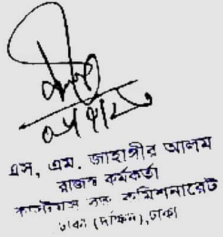 এস, এম. জাহাঙ্গীর আলম
রাজস্ব কর্মকর্তা
কাস্টমস বন্ড কমিশনারেট
ঢাকা (দক্ষিন), ঢাকা